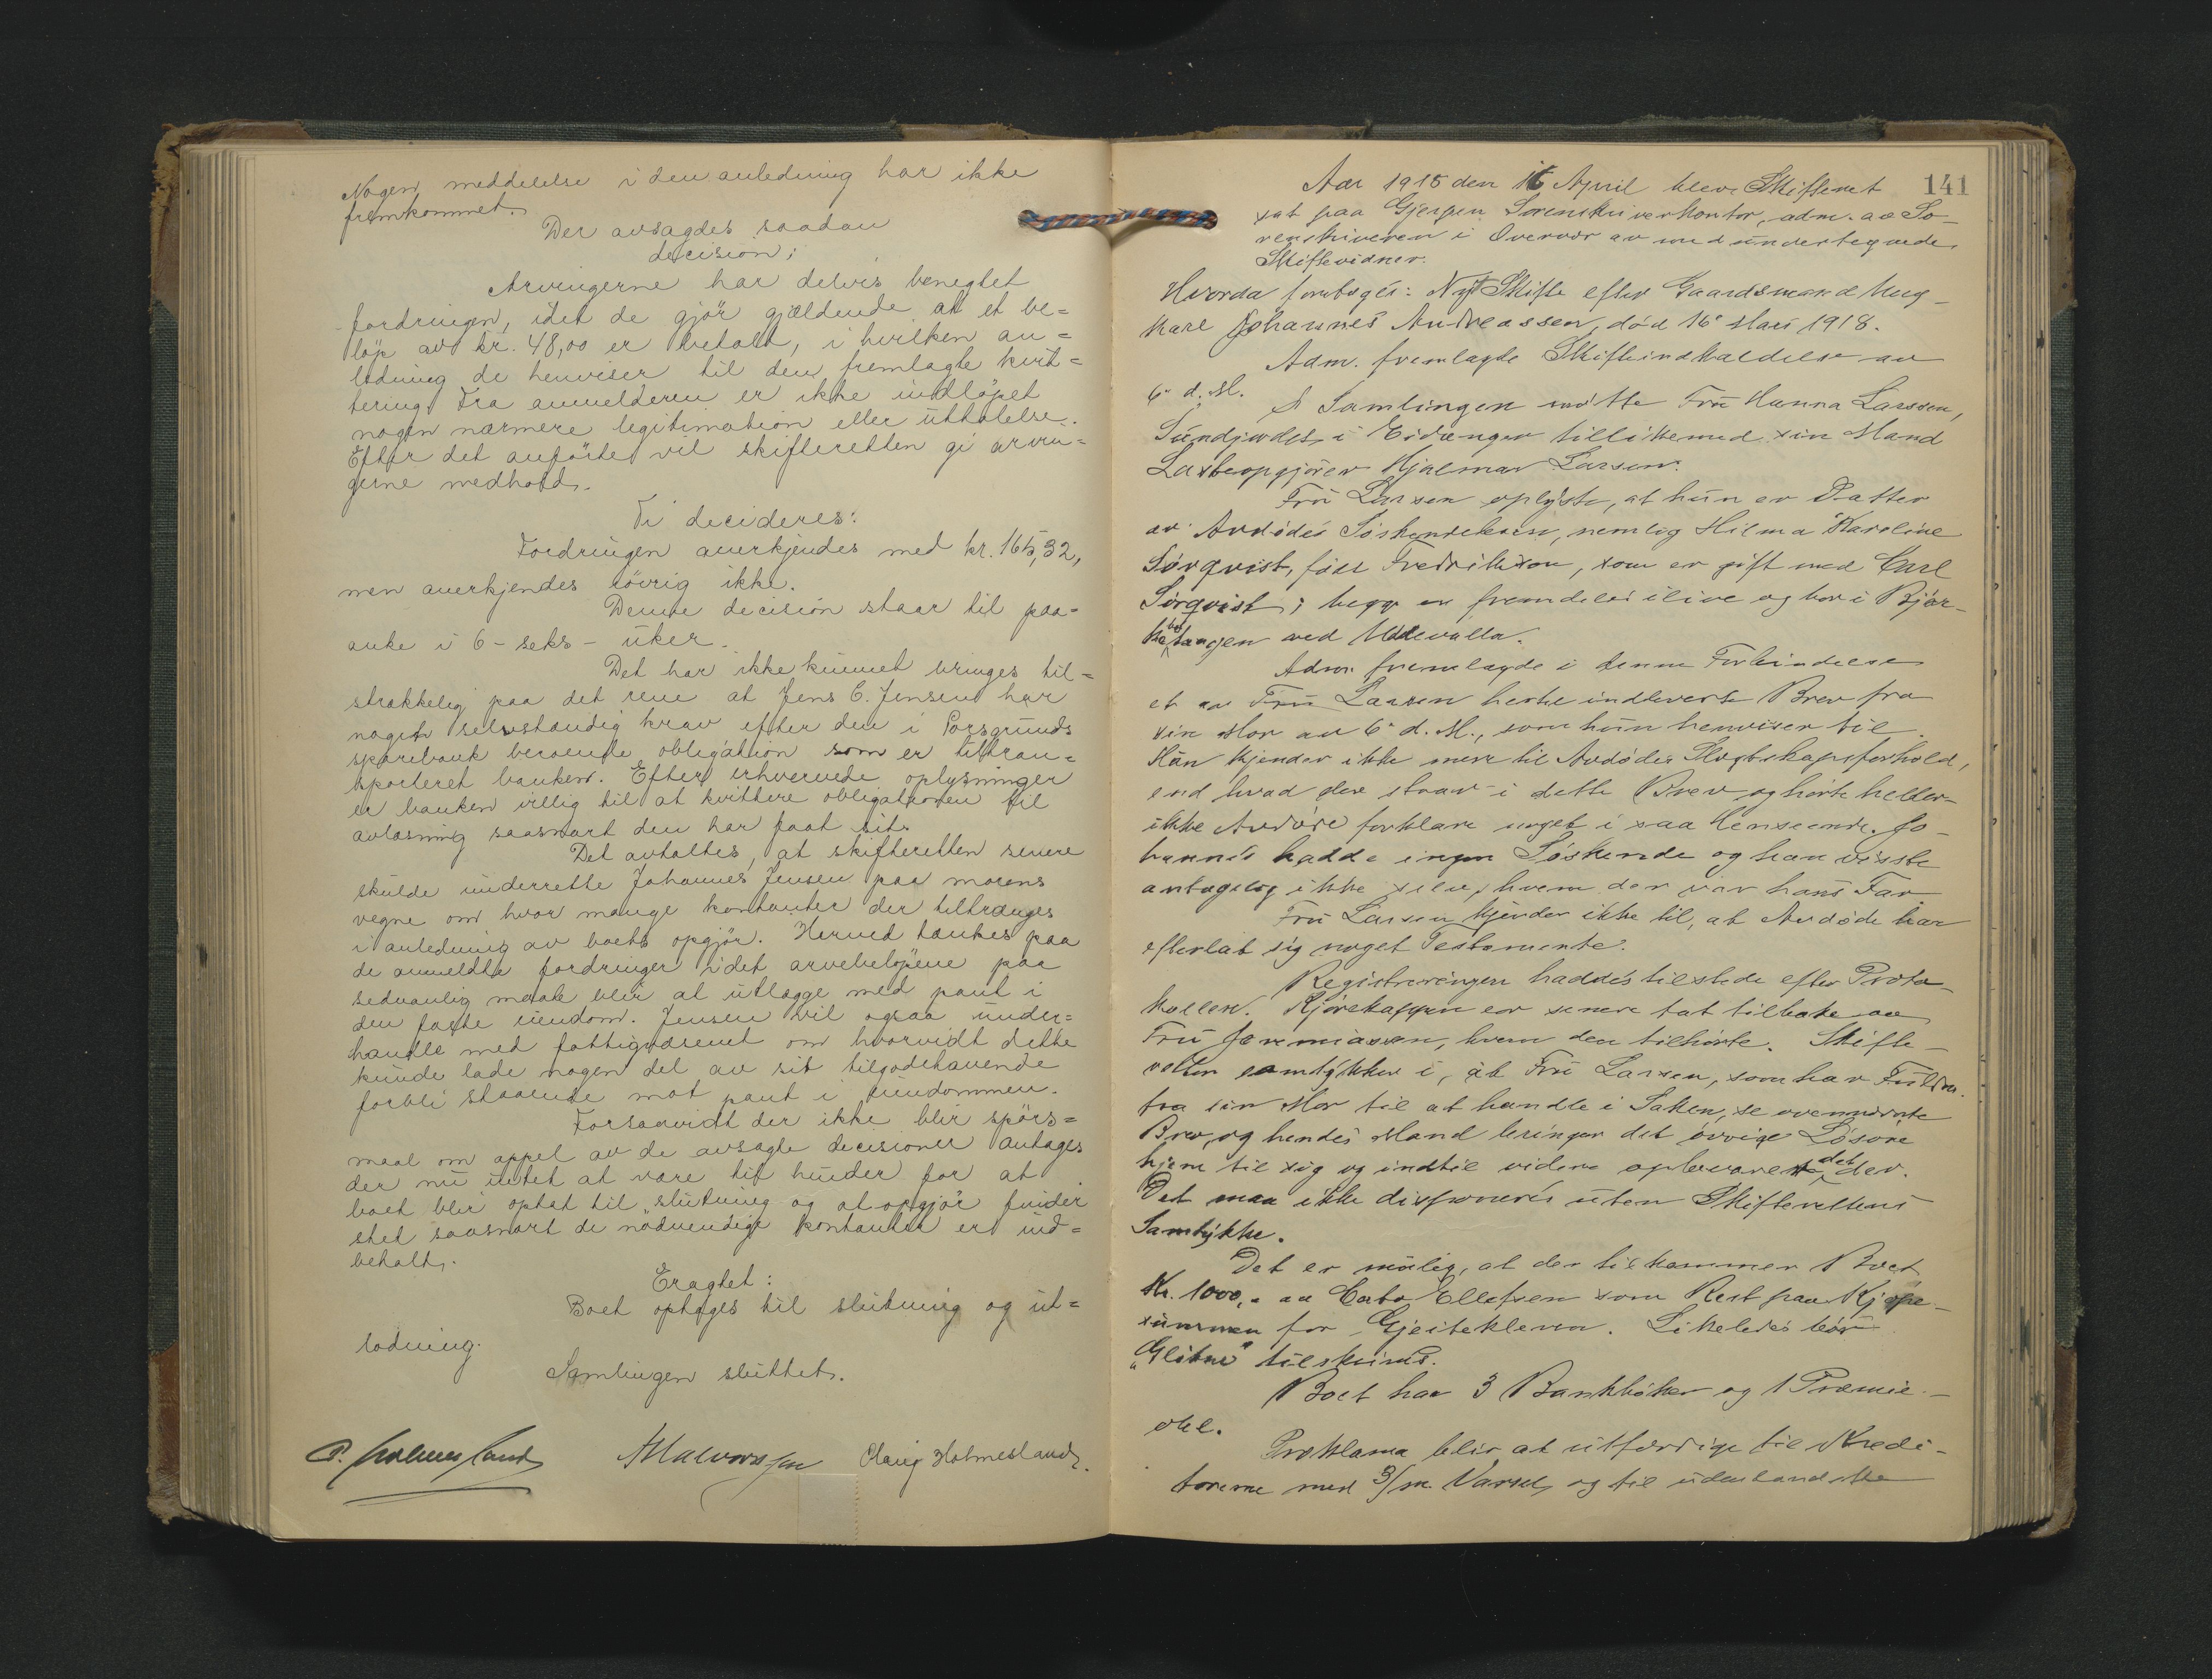 Nogen meddelelse i den anledning har ikke
fremkommet.
Der avsagdes saadan
decision:
Arvingerne har delvis benegtet
fordringen, idet de gjör gjældende at et be=
löp av kr. 48,00 er betalt, i hvilken an=
ledning de henviser til den fremlagte kvit=
tering. Fra anmelderen er ikke indlöpet
nogen nærmere legitimation eller üttalelse.
Efter det anförte vil skifteretten gi arvin=
gerne medhold.
Ti decideres:
Fordringen anerkjendes med kr. 165,32,
men anerkjendes iövrig ikke.
Denne decision staar til paa=
anke i 6 - seks - üker.
Det har ikke künnet bringes til=
strækkelig paa det rene at Jens C. Jensen har
nogen selvstændig krav efter den i Porsgrunds
sparebank beroende obligation som er tiltran=
sporteret banken. Efter erhvervede oplysninger
er banken villig til at kvittere obligationen til
avlæsning saasnart den har faat sit.
Det avtaltes, at skifteretten senere
skulde underrette Johannes Jensen paa morens
vegne om hvor mange kontanter der tiltrænges
i anledning av boets opgjör. Herved tænkes paa
de anmeldte fordringer idet arvebelöpene paa
sedvanlig maate blir at utlægge med pant i
den faste eiendom. Jensen vil ogsaa under=
handle med fattigvæsenet om hvorvidt dette
kunde lade nogen del av sit tilgodehavende
forbli staaende mot pant i eiendommen.
Forsaavidt der ikke blir spörs=
maal om appel av de avsagte decisioner antages
der nu intet at være til hinder for at
boet blir optat til slutning og at opgjör finder
sted saasnart de nödvendige kontanter er ind=
betalt.
Eragtet:
Boet optages til slutning og ut=
lodning.
Samlingen sluttet.
P. Holmesland A Halvorssen Claug Holmesland.
141
Aar 1918 den 16 April blev Skifteret
sat paa Gjerpen Sorenskriverkontor, adm. av So-
renskriveren i Overvær av medundertegnede
Skiftevidner.
Hvorda foretoges: Nyt Skifte efter Gaardsmand Ung-
karl Johannes Andreassen, död 16' Mars 1918.
Adm. fremlagte Skifteindkaldelse av
6' d. M.
I Samlingen mötte Fru Hanna Larssen,
Sundjordet i Eidanger tillikemed sin Mand
Lasteopgjörer Hjalmar Larsen.
Fru Larsen oplyste, at hun er Datter
av Avdödes Söskendebarn, nemlig Hilma Karoline
Sörqvist, född Fredrikson, som er gift med Carl
Sörqvist; begge er fremdeles ilive og bor i Björ-
ketangen ved Uddevalla.
Adm. fremlagde i denne Forbindelse
et av Fru Larsen herte indleverte Brev fra
sin Mor av 6' d. M., som hun henviser til.
Hun kjender ikke mere til Avdödes Slegtskapsforhold,
end hvad der staar i dette Brev og hörte heller
ikke Avdöde forklare noget i saa Henseende. Jo-
hannes hadde ingen Söskende og han visste
antagelig ikke selv, hvem der var hans Far.
Fru Larsen kjender ikke til, at Avdöde har
efterlat sig noget Testamente.
Registreringen haddes tilstede efter Proto-
kollen. Kjörekappen er senere tat tilbake av
Fru Jeremiassen, hvem den tilhörte. Skifte-
retten samtykker i, at Fru Larsen, som har Fuldm.
fra sin Mor til at handle i Saken, se ovennævnte
Brev, og hendes Mand bringer det övrige Lösöre
hjem til sig og indtil videre opbevarer det der.
Det maa ikke disponeres uten Skifterettens
Samtykke.
Det er mulig, at der tilkommer Boet
Kr. 1000,- av Cato Ellefsen som Rest paa Kjöpe-
summen for Gjeitekleven. Likeledes bör
"Glitne" tilskrives.
Boet har 3 Bankböker og 1 Præmie-
obl.
Proklama blir at utfærdige til Kredi-
torerne med 3/m. Varsel, og til udenlandske